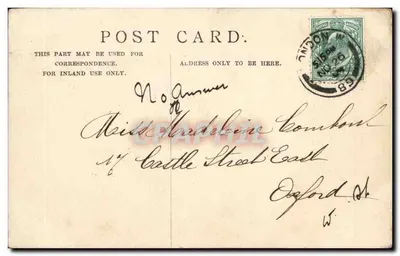 POST CARD.
THIS PART MAY BE USED FOR
CORRESPONDENCE.
FOR INLAND USE ONLY.
ADDRESS ONLY TO BE HERE.
LONDON W.
No Answer
Miss Madeleine
17 Castle Street East
Oxford St
W